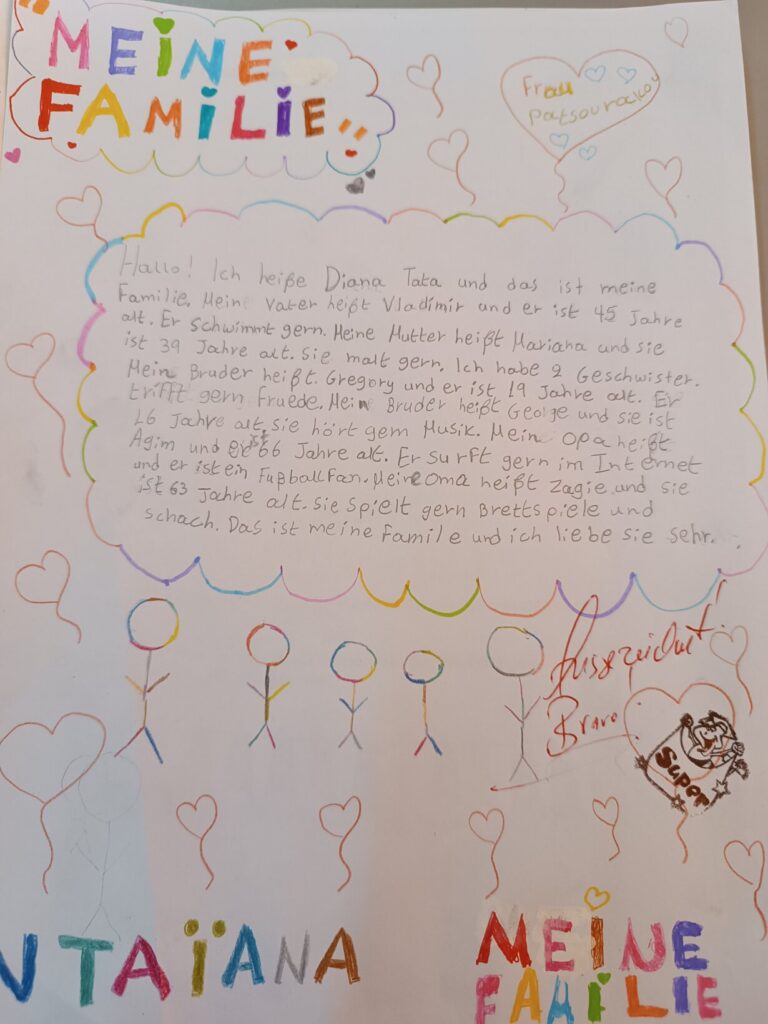 "MEINE
FAMILIE"
Frau
Patsourakou
Hallo! Ich heiße Diana Tata und das ist meine
Familie. Meine Vater heißt Vladimir und er ist 45 Jahre
alt. Er schwimmt gern. Meine Mutter heißt Mariana und sie
ist 39 Jahre alt. Sie malt gern. Ich habe 2 Geschwister.
Mein Bruder heißt. Gregory und er ist 19 Jahre alt. Er
trifft gern Fruede. Mein Bruder heißt George und sie ist
16 Jahre alt. Sie hört gern Musik. Mein Opa heißt
Agim und er ist 66 Jahre alt. Er surft gern im Internet
und er ist ein Fußballfan. Meine Oma heißt Zagie und sie
ist 63 Jahre alt. Sie spielt gern Brettspiele und
schach. Das ist meine Famile und ich liebe sie sehr.
Ausgezeichnet!
Bravo!
Super
NTAÏANA
MEINE
FAMILIE